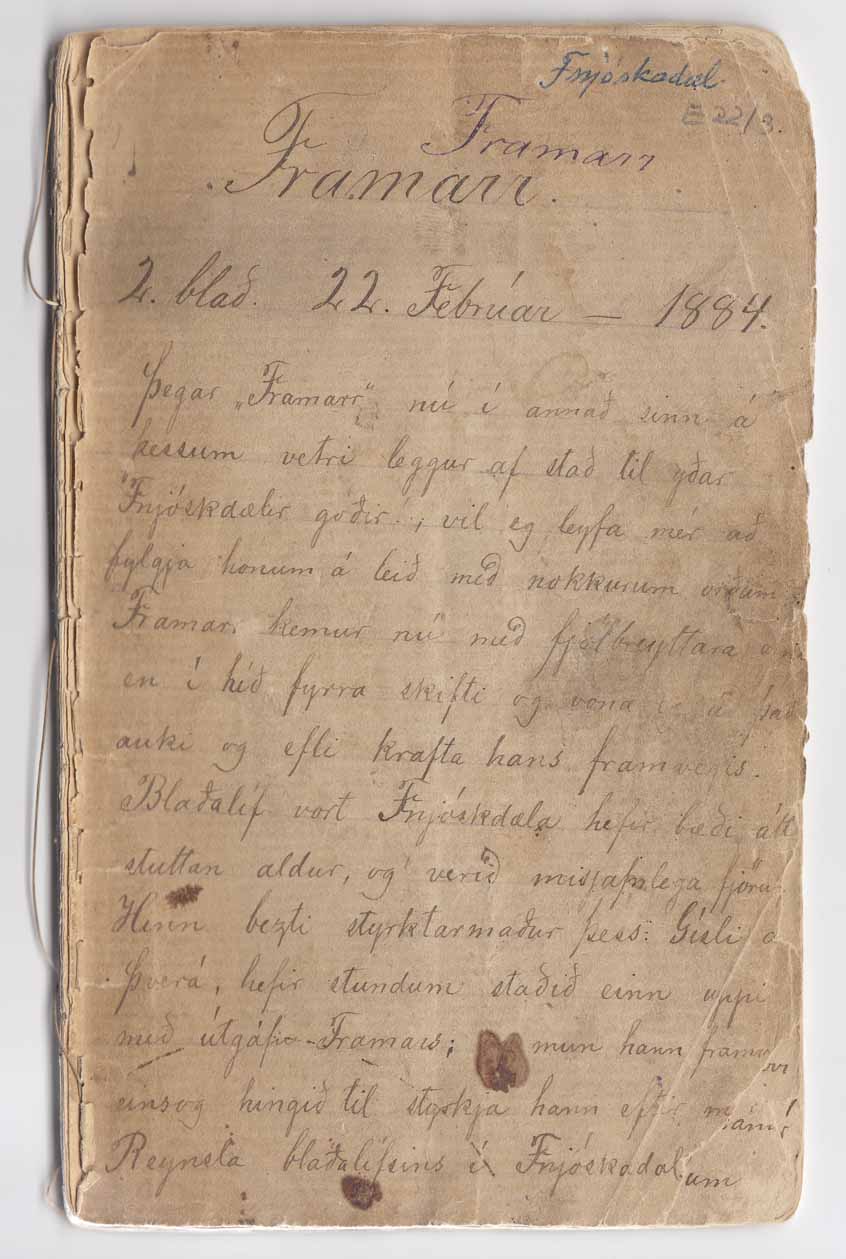 Fnjóskadal.
E 22/3.
Framarr
Framarr.
2. blað. 22. Febrúar — 1884.
Þegar „Framarr“ nú í annað sinn á
þessum vetri leggur af stað til yðar
Fnjóskdælir góðir!, vil eg leyfa mér að
fylgja honum á leið með nokkurum orðum.
Framarr kemur nú með fjölbreyttara
en í hið fyrra skifti og vona það
auki og efli krafta hans framvegis.
Blaðalíf vort Fnjóskdæla hefir bæði átt
stuttan aldur, og verið misjafnlega
Hinn bezti styrktarmaður þess: Gísli á
Þverá, hefir stundum staðið einn uppi
með útgáfu Framars; mun hann
einsog hingið til styrkja hann eftir
Reynsla blaðalífsins í Fnjóskadalnum